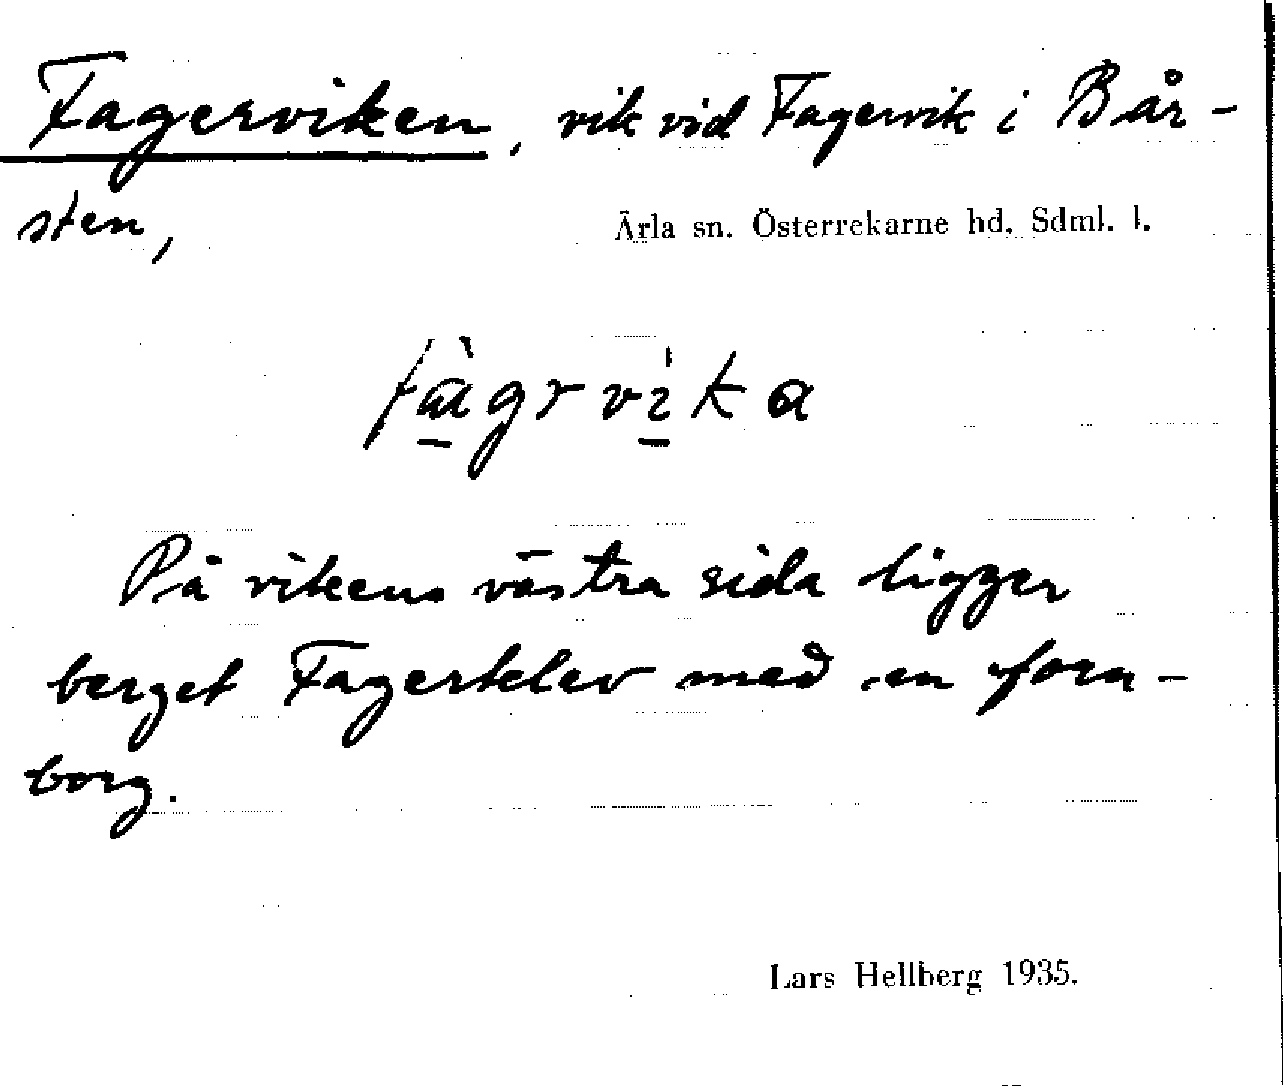 Fagerviken, vik vid Fagervik i Bår-
sten,
Ärla sn. Österrekarne hd. Sdml. l.
fàgrvika
På vikens västra sida ligger
berget Fagerklev med en forn-
borg.
Lars Hellberg 1935.